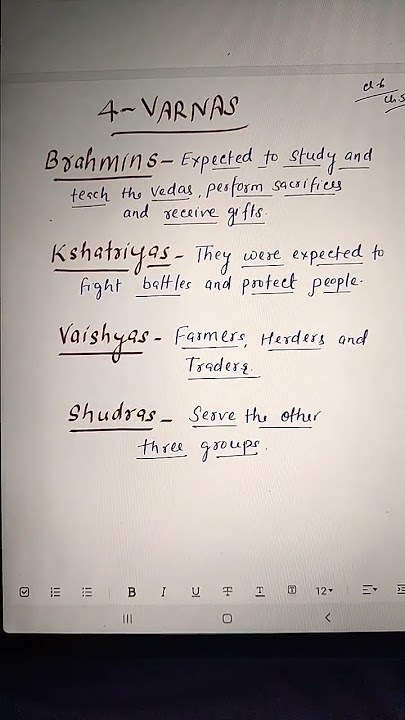 cl-6
ch-5
4-VARNAS
Brahmins - Expected to study and
teach the Vedas, perform sacrifices
and receive gifts.
Kshatriyas - They were expected to
fight battles and protect people.
Vaishyas - Farmers, Herders and
Traders.
Shudras - Serve the other
three groups.
B I U T T T 12